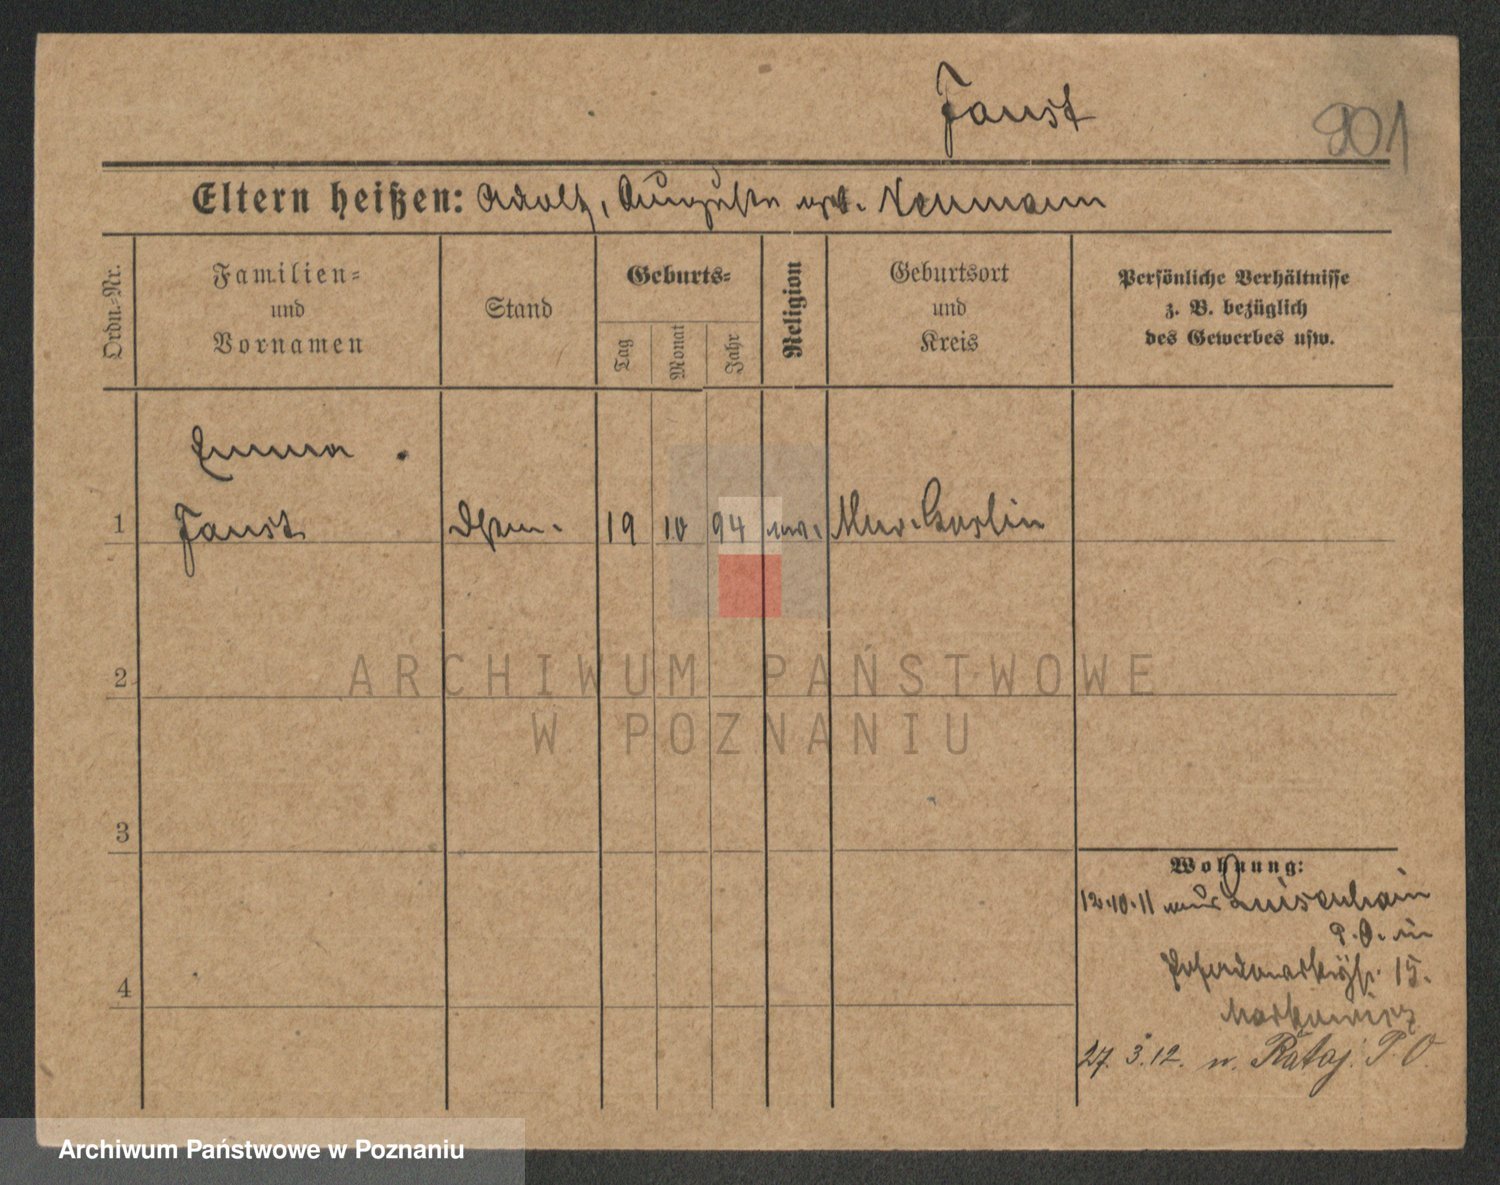 Faust
901
Eltern heißen: Adolf, Auguste geb. Neumann
Ordn.-Nr.
Familien-
und
Vornamen
Stand
Geburts-
Tag
Monat
Jahr
Religion
Geburtsort
und
Kreis
Persönliche Verhältnisse
z. B. bezüglich
des Gewerbes usw.
Emma
1 Faust 19 10 94 Mur. Goslin
2
3
4
Wohnung:
12.10.11 Luisenhain
P. O. in
15.
27. 3. 12. n. Rataj P. O.
ARCHIWUM PAŃSTWOWE
W POZNANIU
Archiwum Państwowe w Poznaniu